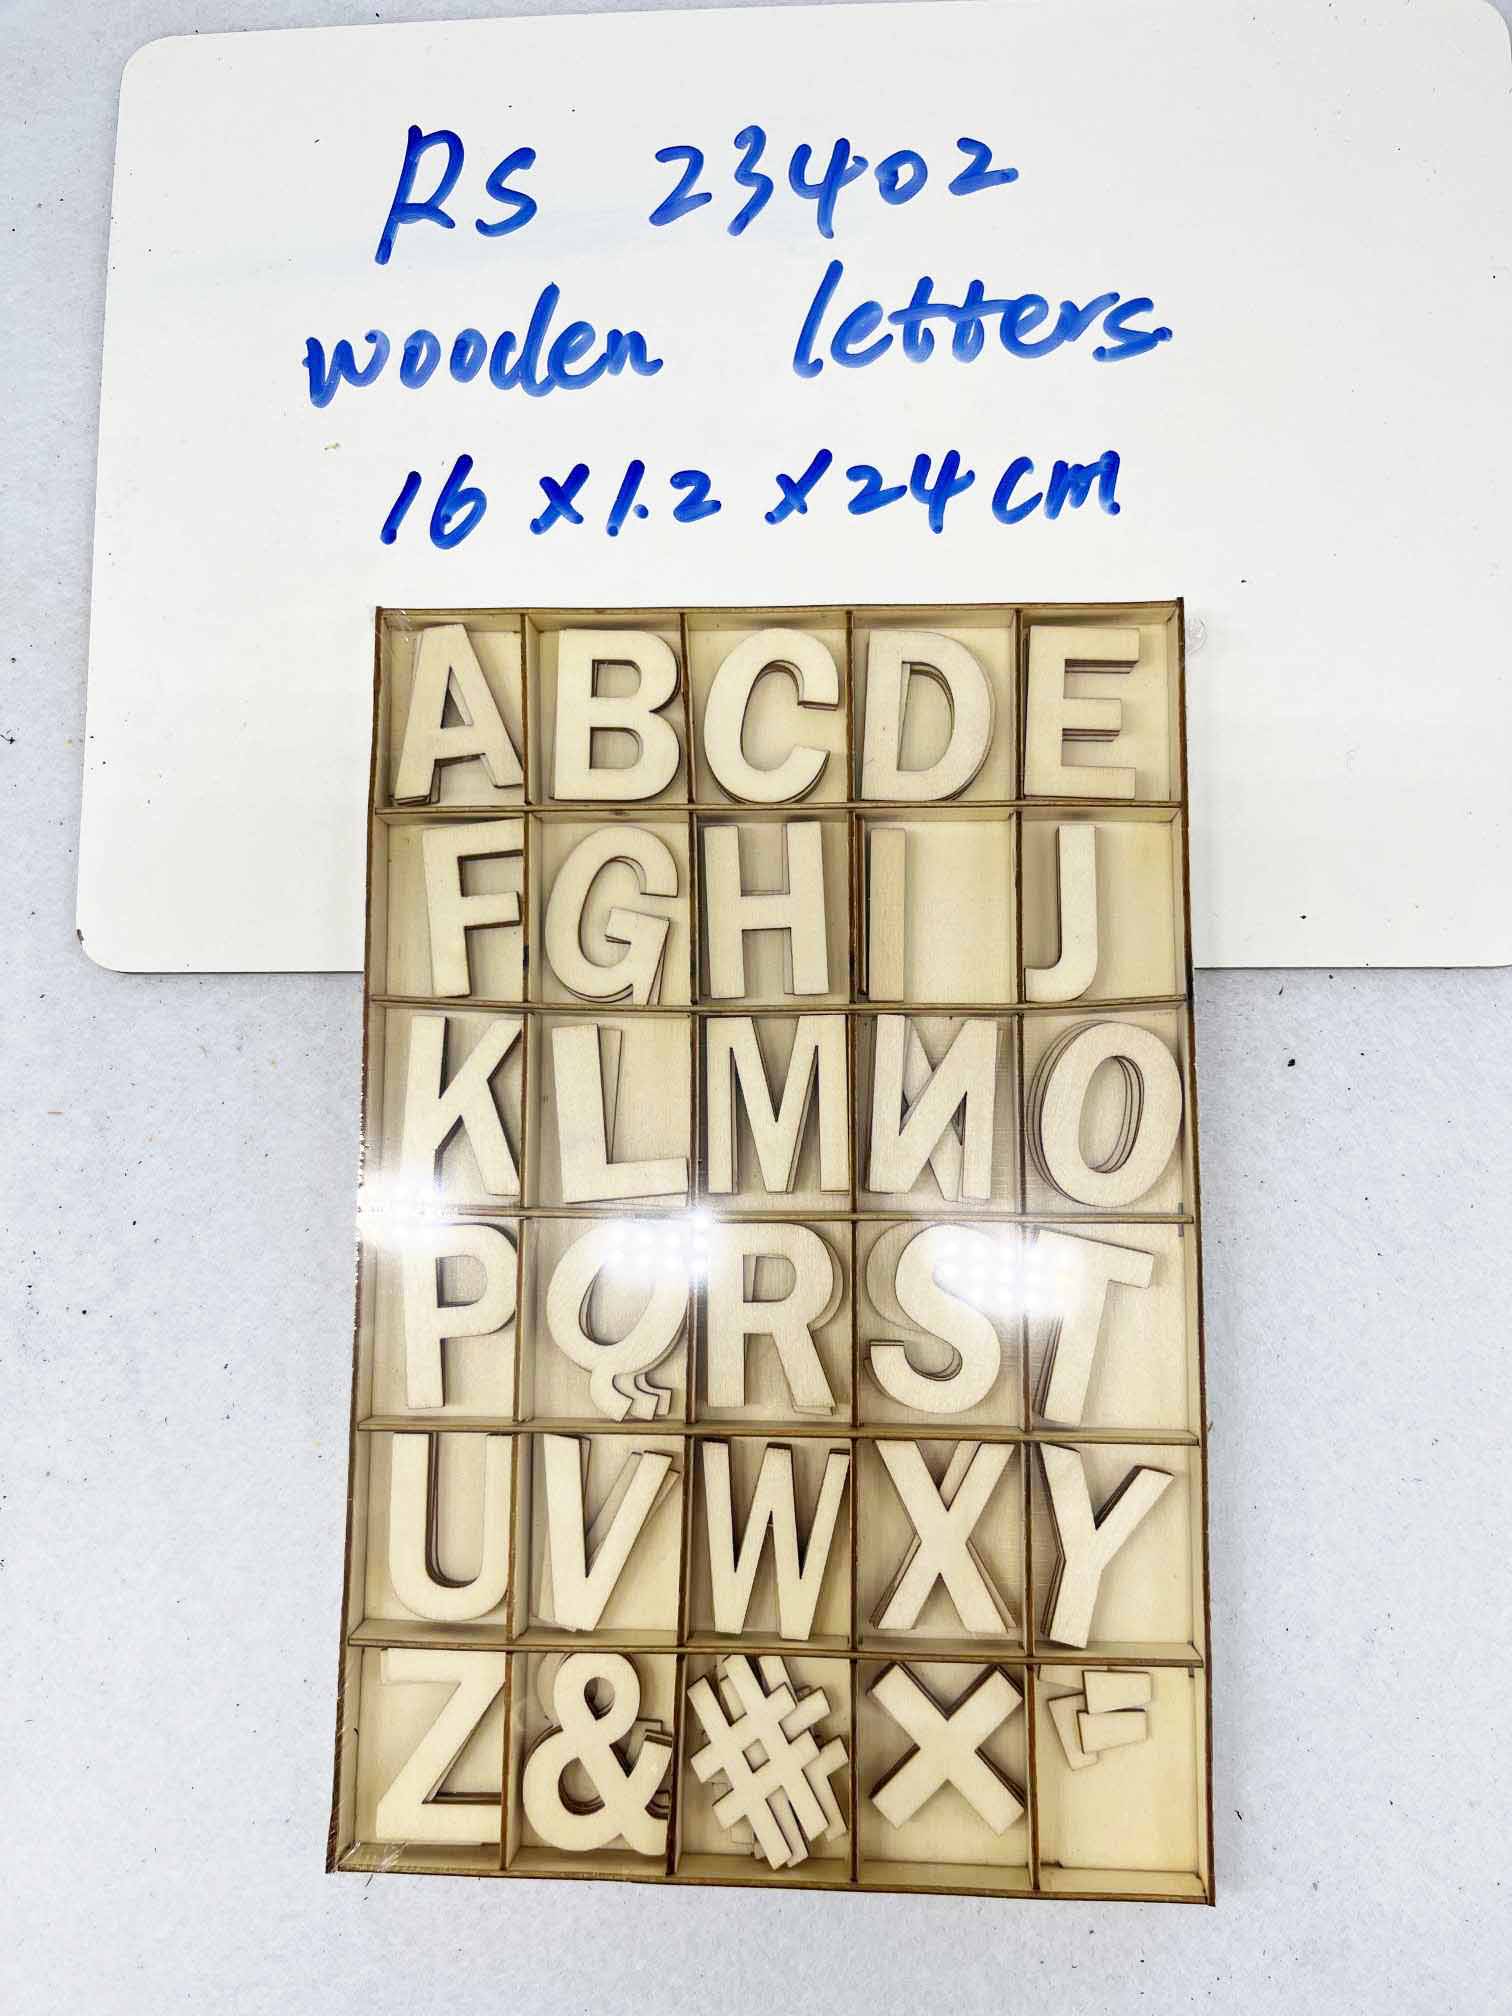 RS 23402
wooden letters
16 x 1.2 x 24 cm
A B C D E
F G H I J
K L M N O
P Q R S T
U V W X Y
Z & # ×